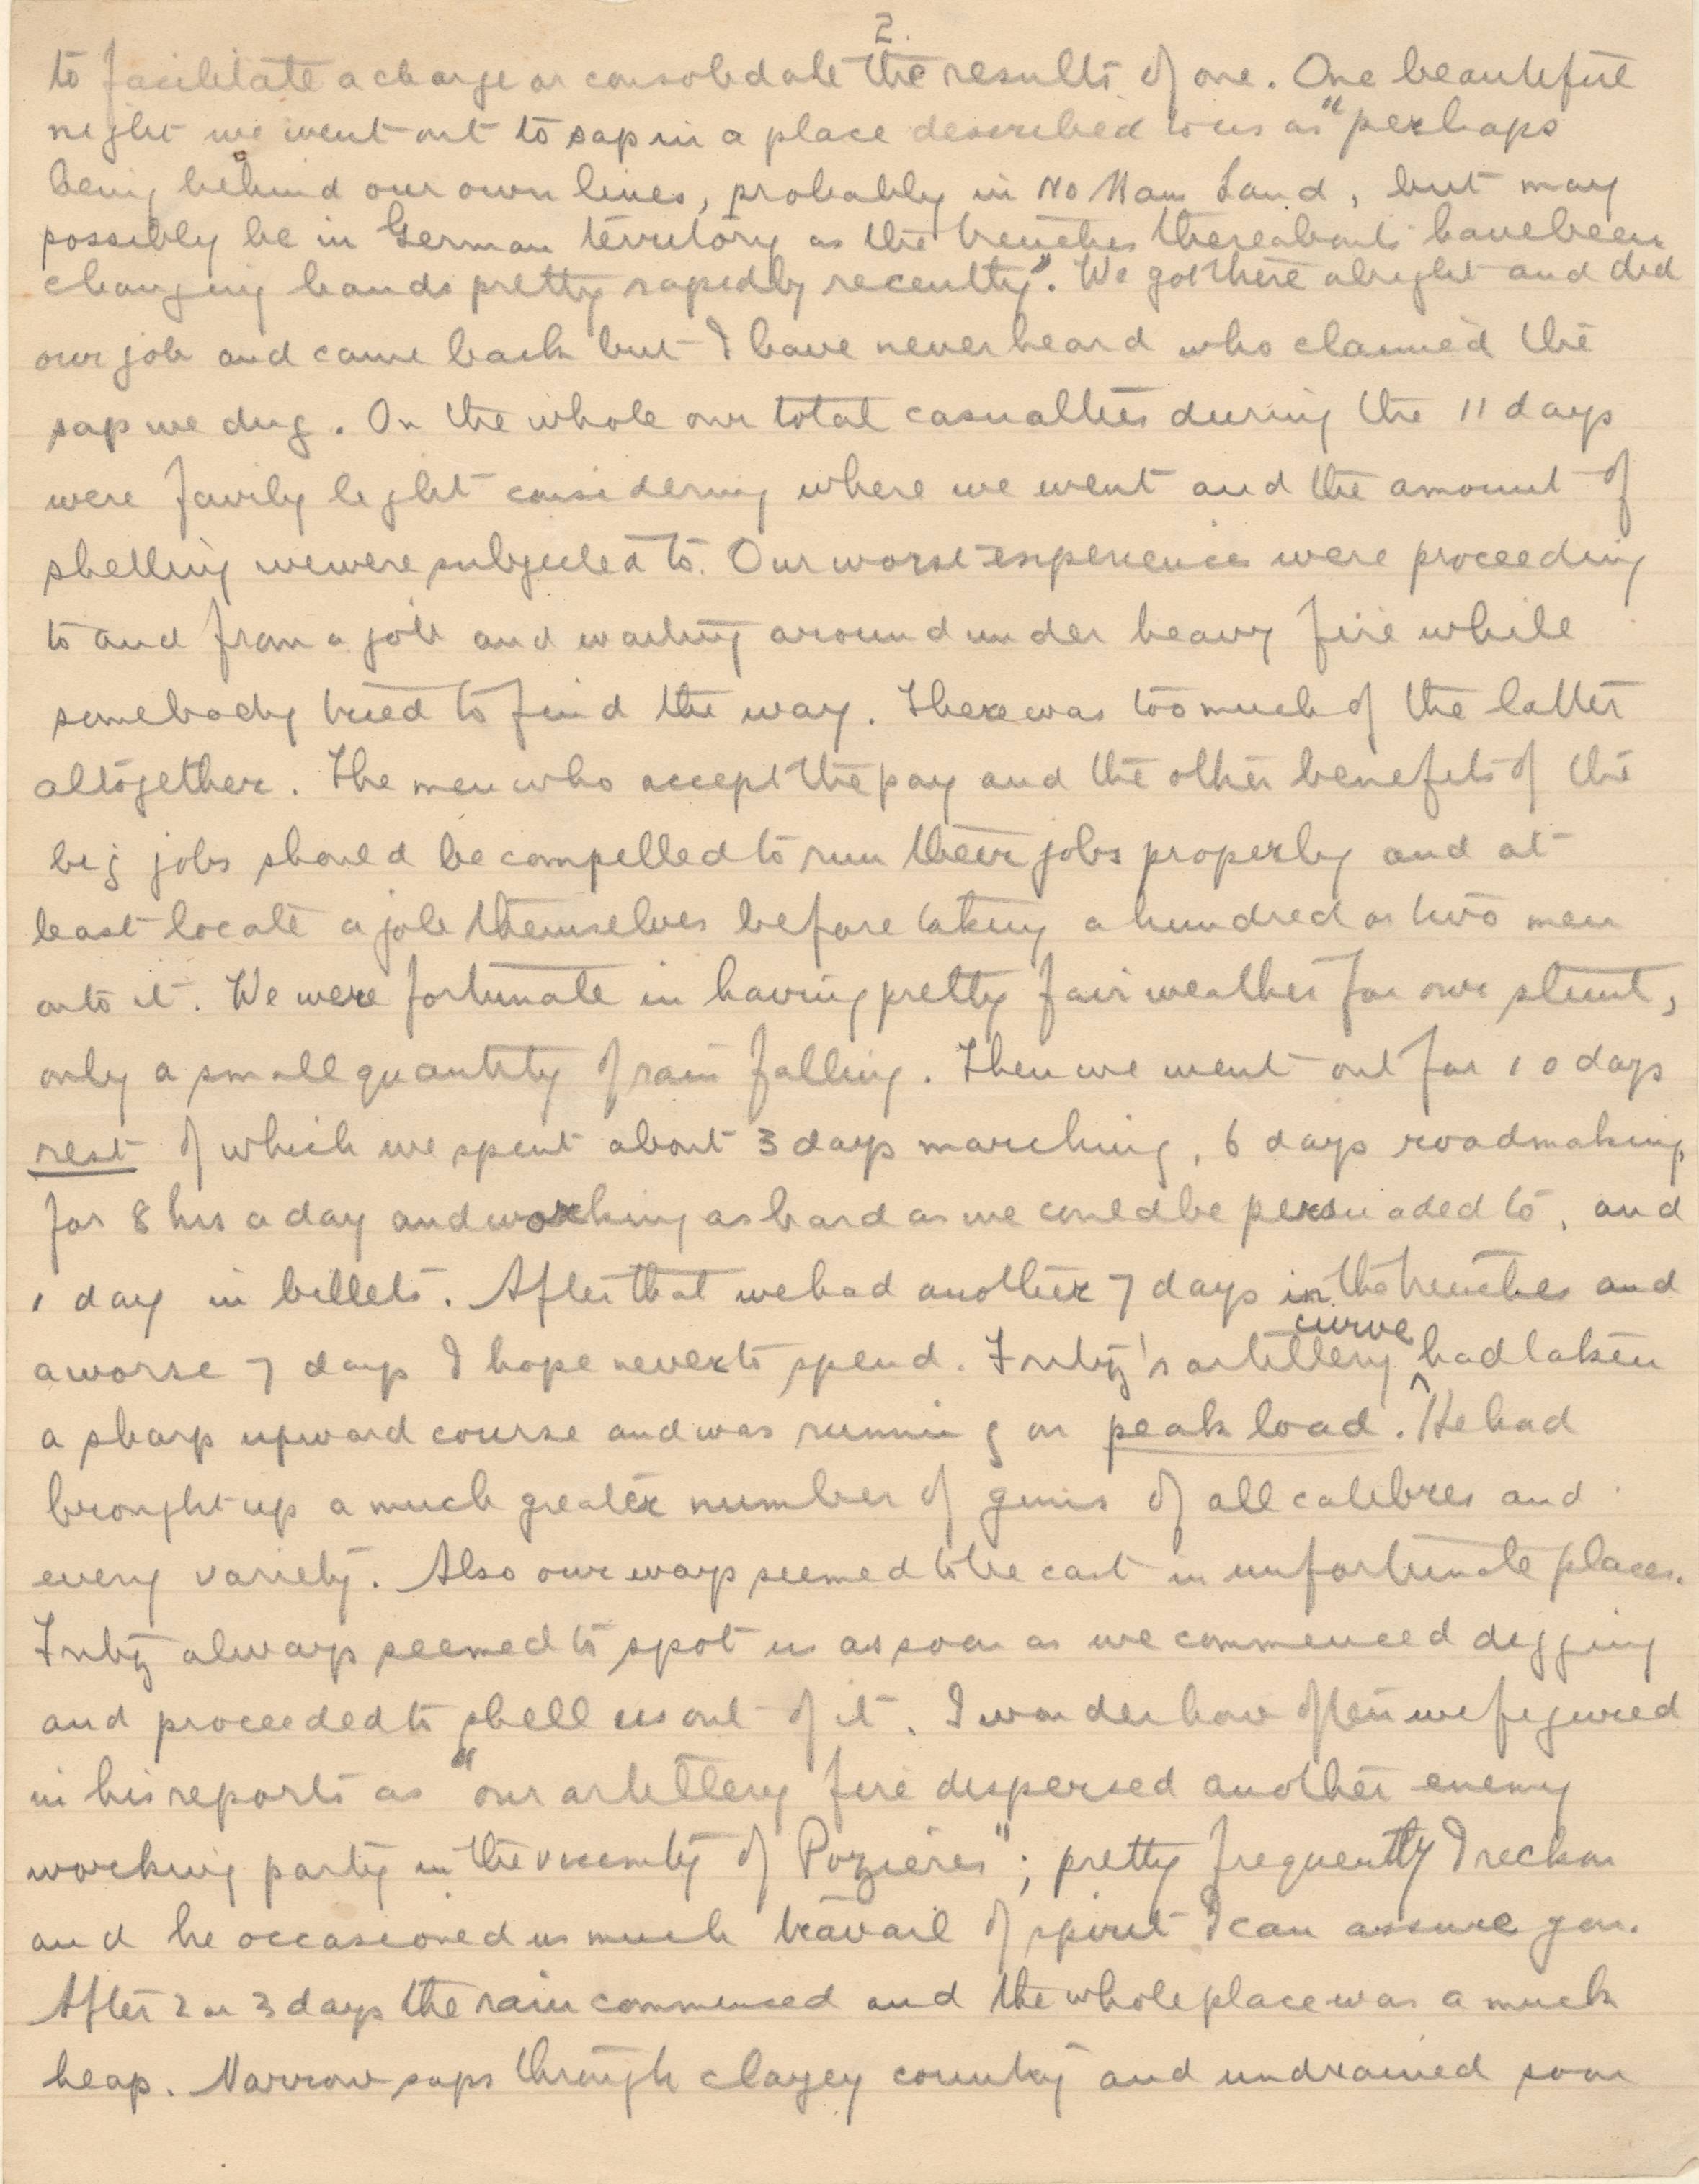 2.
to facilitate a charge or consolidate the results of one. One beautiful
night we went out to sap in a place described to us as "perhaps
being behind our own lines, probably in No Mans Land, but may
possibly be in German territory as the trenches thereabouts have been
changing hands pretty rapidly recently". We got there alright and did
our job and came back but I have never heard who claimed the
sap we dug. On the whole our total casualties during the 11 days
were fairly light considering where we went and the amount of
shelling we were subjected to. Our worst experiences were proceeding
to and from a job and waiting around under heavy fire while
somebody tried to find the way. There was too much of the latter
altogether. The men who accept the pay and the other benefits of the
big jobs should be compelled to run their jobs properly and at
least locate a job themselves before taking a hundred or two men
onto it. We were fortunate in having pretty fair weather for our stunt,
only a small quantity of rain falling. Then we went out for 10 days
rest of which we spent about 3 days marching, 6 days roadmaking,
for 8 hrs a day and working as hard as we could be persuaded to, and
1 day in billets. After that we had another 7 days in the trenches and
a worse 7 days I hope never to spend. Fritz's artillery curve had taken
a sharp upward course and was running on peak load. He had
brought up a much greater number of guns of all calibres and
every variety. Also our ways seemed to be cast in unfortunate places.
Fritz always seemed to spot us as soon as we commenced digging
and proceeded to shell us out of it. I wonder how often we figured
in his reports as "our artillery fire dispersed another enemy
working party in the vicinity of Pozieres"; pretty frequently I reckon
and he occasioned us much travail of spirit I can assure you.
After 2 or 3 days the rain commenced and the whole place was a muck
heap. Narrow saps through clayey country and undrained soon